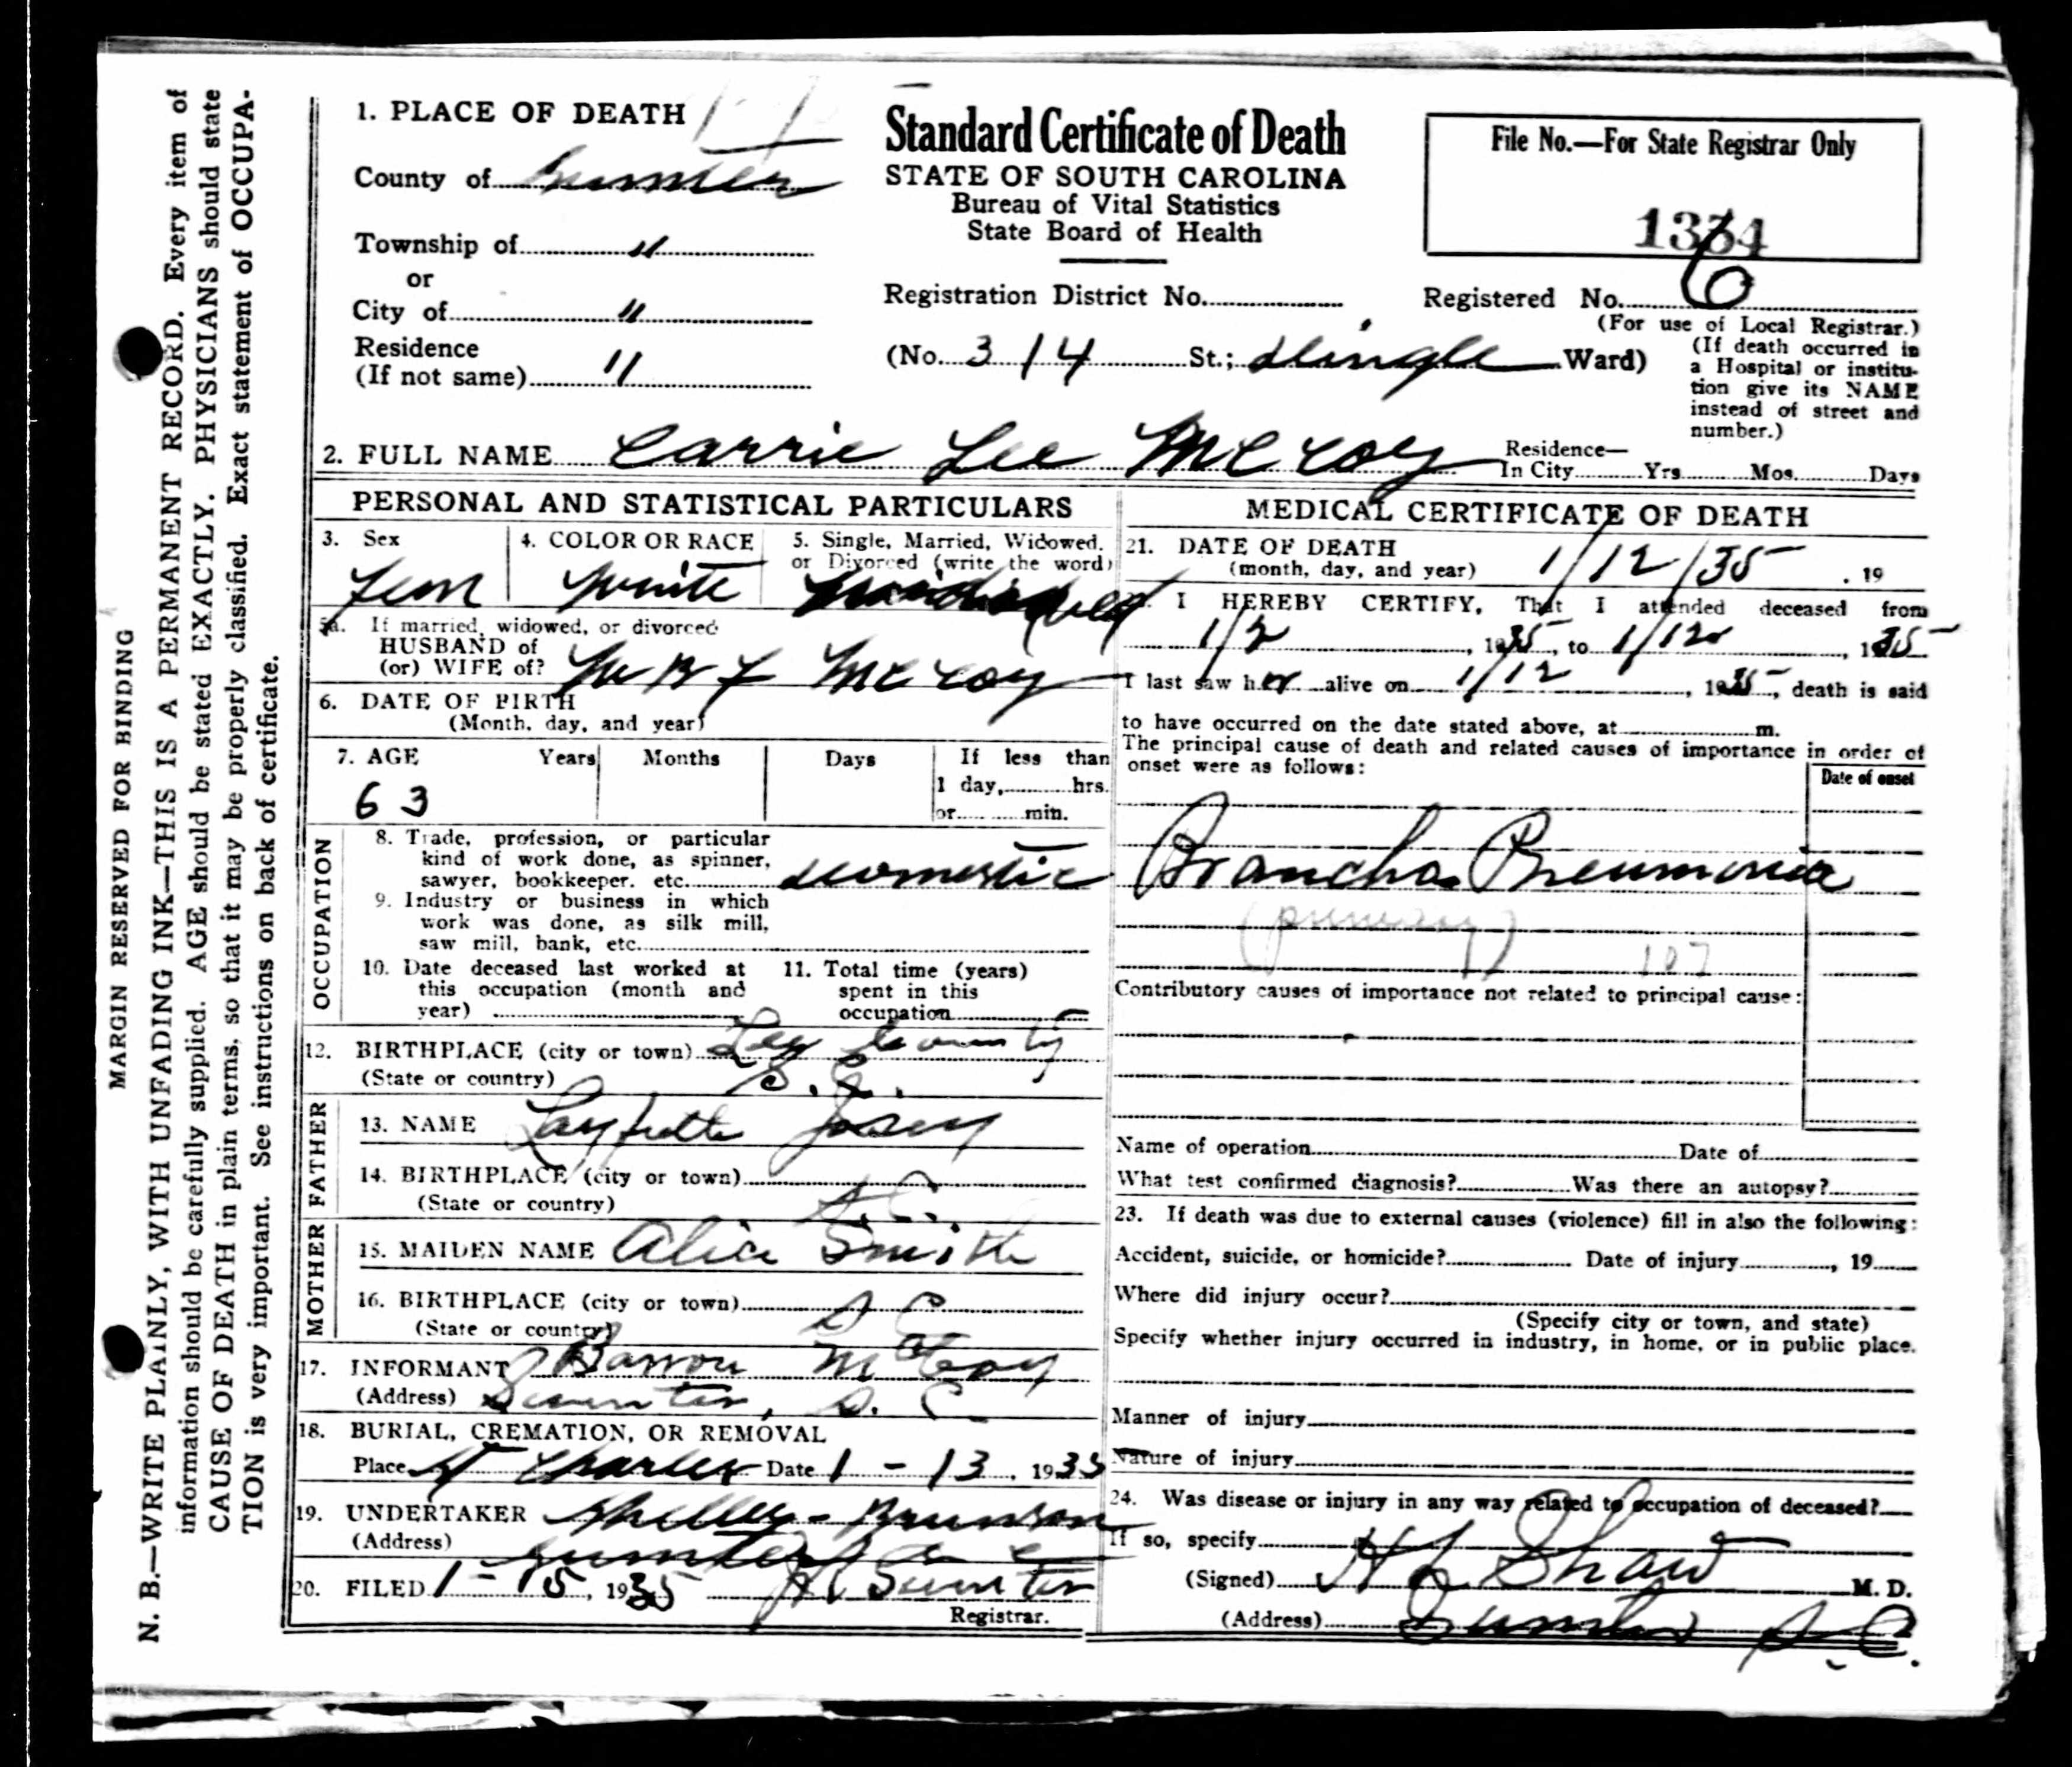 MARGIN RESERVED FOR BINDING
N. B.—WRITE PLAINLY, WITH UNFADING INK—THIS IS A PERMANENT RECORD. Every item of
information should be carefully supplied. AGE should be stated EXACTLY. PHYSICIANS should state
CAUSE OF DEATH in plain terms, so that it may be properly classified. Exact statement of OCCUPA-
TION is very important. See instructions on back of certificate.
1. PLACE OF DEATH
County of Sumter
Township of "
or
City of "
Residence
(If not same) "
Standard Certificate of Death
STATE OF SOUTH CAROLINA
Bureau of Vital Statistics
State Board of Health
Registration District No.
(No. 314 St.; Dingle Ward)
File No.—For State Registrar Only
Registered No. 6
(For use of Local Registrar.)
(If death occurred in
a Hospital or institu-
tion give its NAME
instead of street and
number.)
2. FULL NAME Carrie Lee McCoy
Residence—
In City Yrs. Mos. Days
PERSONAL AND STATISTICAL PARTICULARS
3. Sex
Fem
4. COLOR OR RACE
White
5. Single, Married, Widowed,
or Divorced (write the word)
5a. If married, widowed, or divorced
HUSBAND of
(or) WIFE of? McCoy
6. DATE OF BIRTH
(Month, day, and year)
7. AGE Years Months Days If less than
1 day, hrs.
or min.
63
OCCUPATION
8. Trade, profession, or particular
kind of work done, as spinner,
sawyer, bookkeeper, etc. domestic
9. Industry or business in which
work was done, as silk mill,
saw mill, bank, etc.
10. Date deceased last worked at
this occupation (month and
year)
11. Total time (years)
spent in this
occupation
12. BIRTHPLACE (city or town) Lee County
(State or country) S. C.
FATHER
13. NAME Layfette Josey
14. BIRTHPLACE (city or town)
(State or country) S. C.
MOTHER
15. MAIDEN NAME Alice Smith
16. BIRTHPLACE (city or town) S C
(State or country)
17. INFORMANT Barron McCoy
(Address) Sumter, S. C.
18. BURIAL, CREMATION, OR REMOVAL
Place St Charles Date 1 - 13, 1935
19. UNDERTAKER Shelley - Brunson
(Address) Sumter S C
20. FILED 1 - 15, 1935
Registrar.
MEDICAL CERTIFICATE OF DEATH
21. DATE OF DEATH
(month, day, and year) 1/12/35 . 19
I HEREBY CERTIFY, That I attended deceased from
1/2, 1935, to 1/12, 1935
I last saw her alive on 1/12, 1935, death is said
to have occurred on the date stated above, at m.
The principal cause of death and related causes of importance in order of
onset were as follows:
Date of onset
Broncho Pneumonia
(primary)
107
Contributory causes of importance not related to principal cause:
Name of operation Date of
What test confirmed diagnosis? Was there an autopsy?
23. If death was due to external causes (violence) fill in also the following:
Accident, suicide, or homicide? Date of injury , 19
Where did injury occur?
(Specify city or town, and state)
Specify whether injury occurred in industry, in home, or in public place.
Manner of injury
Nature of injury
24. Was disease or injury in any way related to occupation of deceased?
If so, specify
(Signed) H L Shaw M. D.
(Address) Sumter S. C.